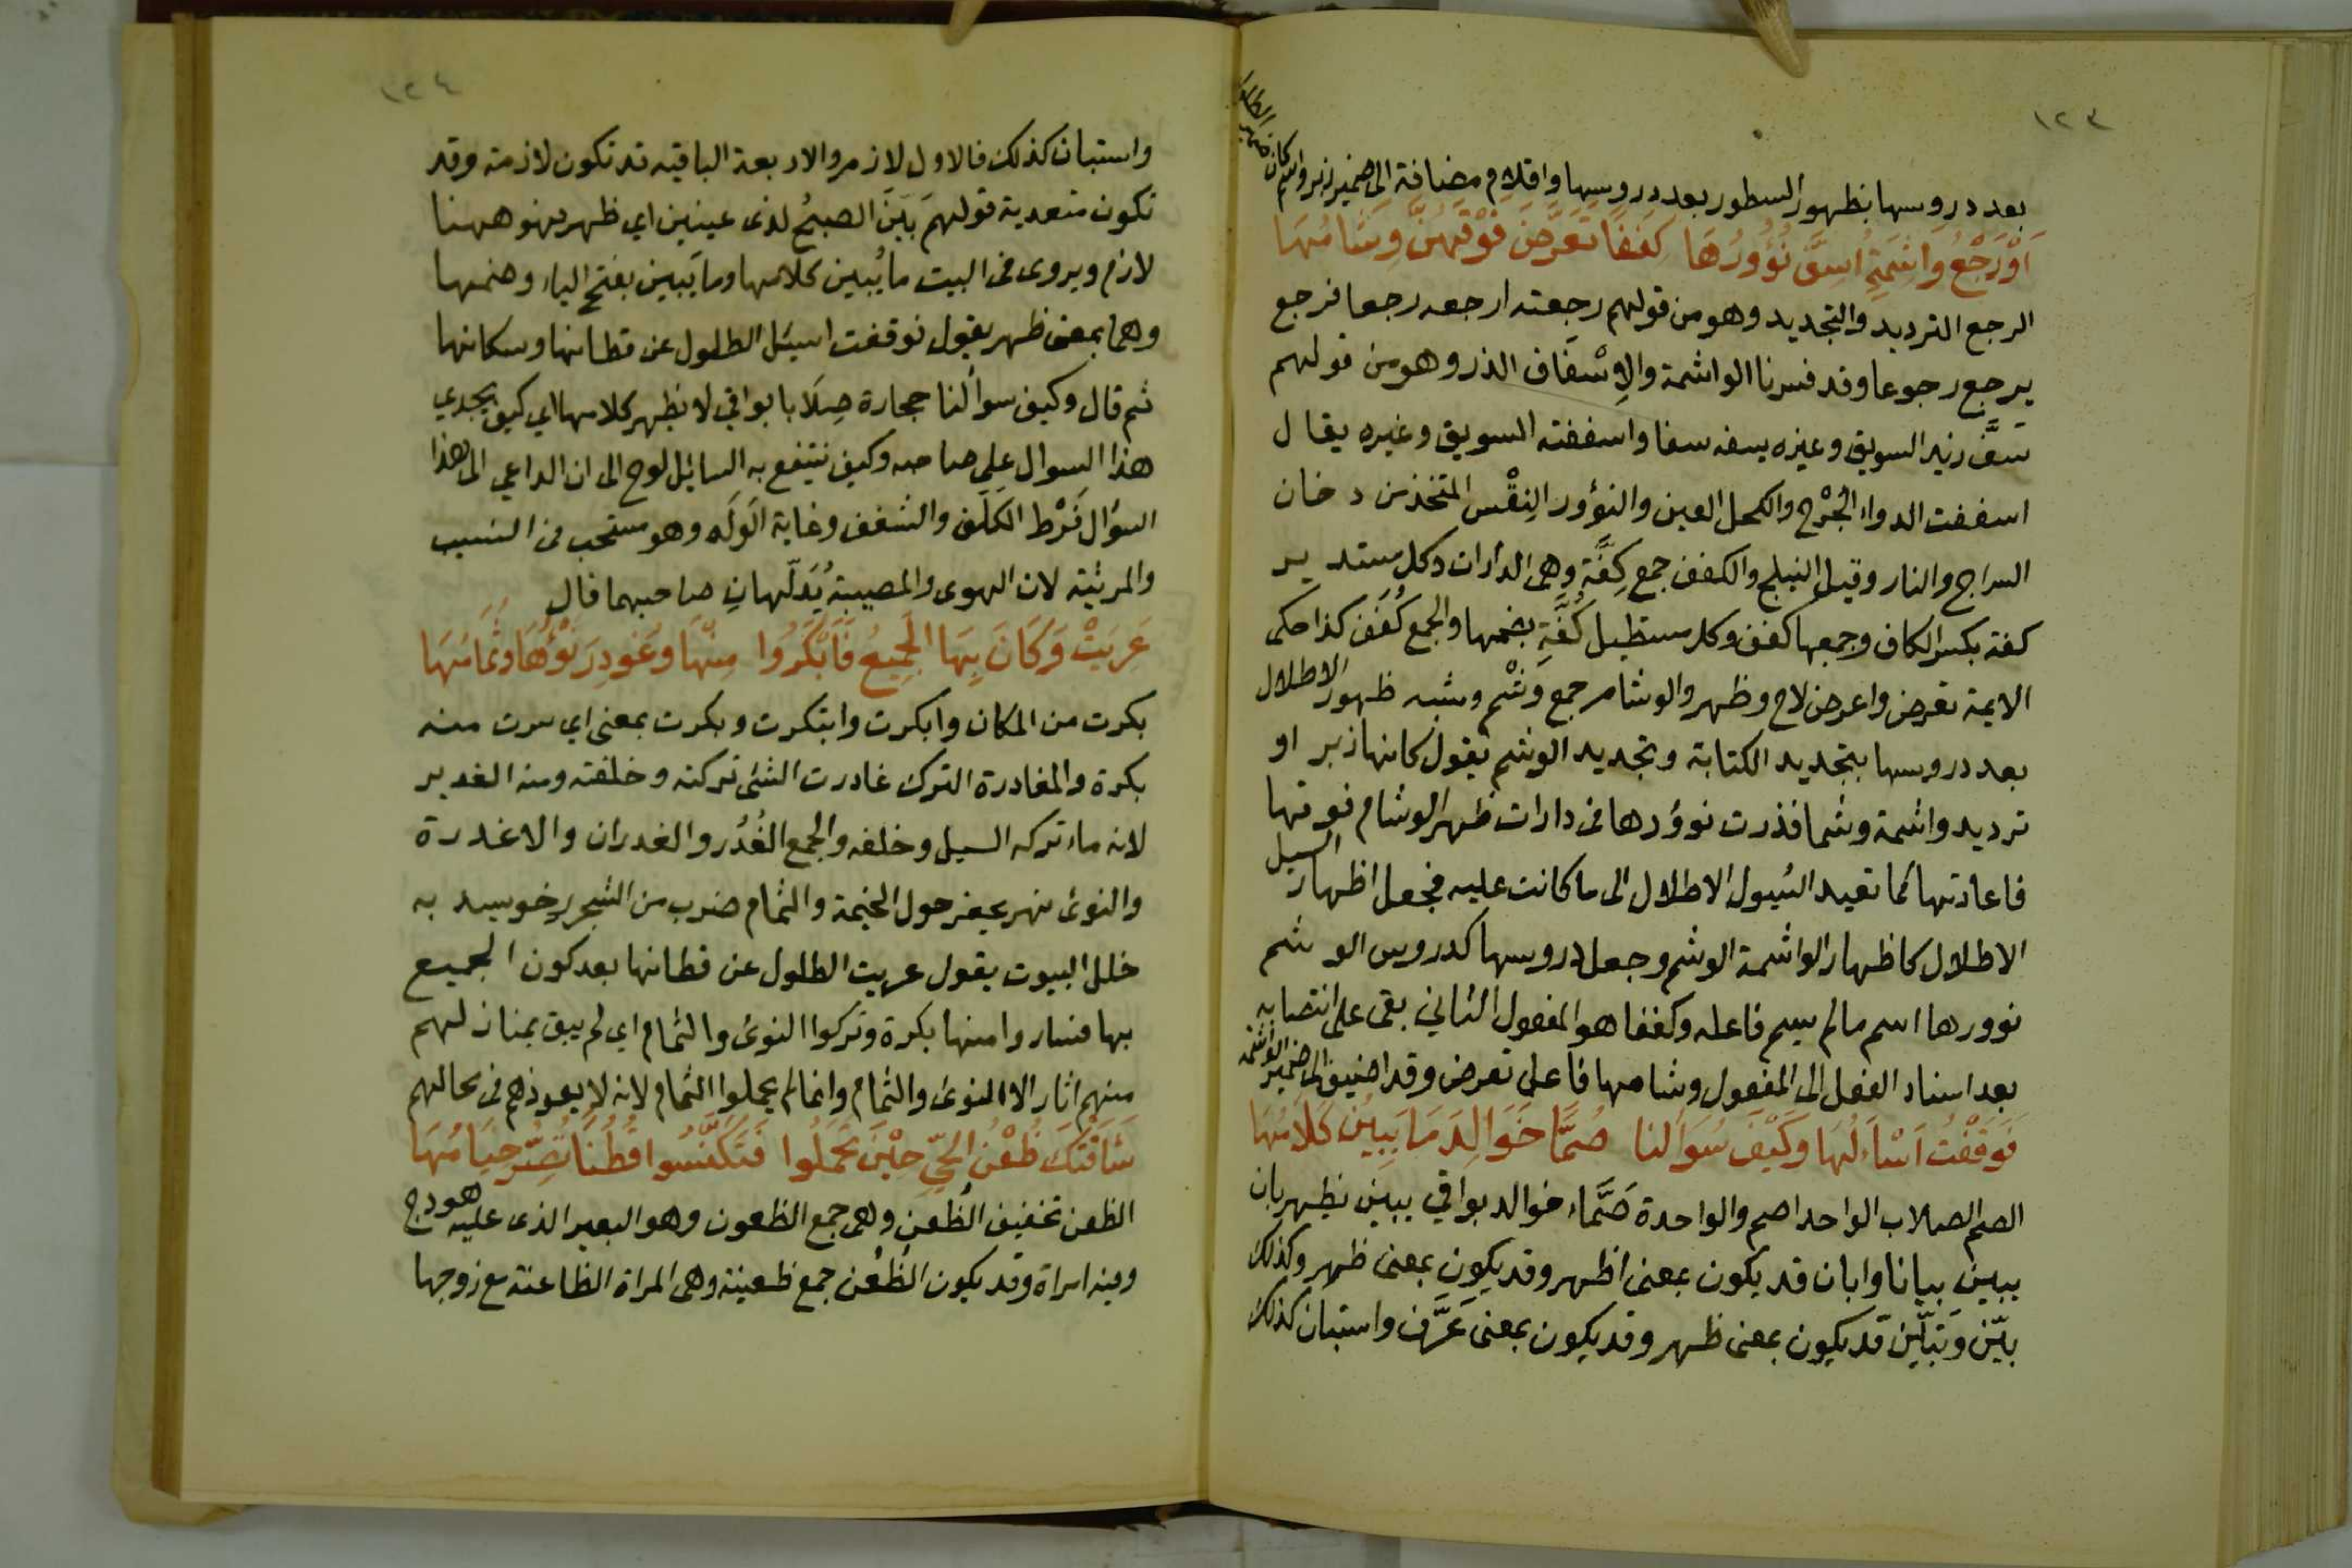 ١٢٣
بعد دروسها بظهور السطور بعد دروسها واقلام مضافة الى ضمير زبر واسم كان ضمير الطلول
اَوْرَجْعُ وَاشِمَةٍ اُسِفَّ نُؤُورُهَا كِفَفًا تَعَرَّضَ فَوْقَهُنَّ وِشَامُهَا
الرجع الترديد والتجديد وهو من قولهم رجعته ارجعه رجعا فرجع
يرجع رجوعا وقد فسرنا الواشمة والاِسْفَاف الذر وهو من قولهم
سَفَّ زيد السويق وغيره يسفه سفا واسففته السويق وغيره يقال
اسففت الدواء الجُرْح والكحل العين والنؤور النِقْس المتخذ من دخان
السراج والنار وقيل النيلج والكفف جمع كِفَّةٍ وهى الدارات وكل مستدير
كفة بكسر الكاف وجمعها كفف وكل مستطيل كُفَّةٍ بضمها والجمع كُفَف كذا حكى
الايمة تعرض واعرض لاح وظهر والوشام جمع وَشْم وشبه ظهور الاطلال
بعد دروسها بتجديد الكتابة وتجديد الوشم يقول كانها زبر او
ترديد واشمة وشما فذرت نوؤرها فى دارات ظهر الوشام فوقها
فاعادتها كما تعيد السُيول الاطلال الى ما كانت عليه فجعل اظهار السيل
الاطلال كاظهار الواشمة الوشم وجعل دروسها كدروس الوشم
نوورها اسم ما لم يسم فاعله وكففا هو المفعول الثاني بقى على انتصابه
بعد اسناد الفعل الى المفعول وشامها فاعل تعرض وقد اضيف الى ضمير الواشمه
فَوَقَفْتُ اَسْاَلُهَا وَكَيْفَ سُوَالنا صُمًّا خَوَالِدَ مَا يَبِيْنُ كَلَامُهَا
الصم الصلاب الواحد اصم والواحدة صَمَّاء خوالد بواقي يبين يظهر بان
يبين بيانا وابان قد يكون بمعنى اظهر وقد يكون بمعنى ظهر وكذلك
بيّن وتبيّن قد يكون بمعنى ظهر وقد يكون بمعنى عَرَّف واستبان كذلك
١٢٤
واستبان كذلك فالاول لازم والاربعة الباقيه قد تكون لازمة وقد
تكون متعدية قولهم بَيَن الصبحُ لذى عينين اي ظهر فهو ههنا
لازم ويروى فى البيت ما يُبين كلامها وما يَبين بفتح الياء وضمها
وهما بمعنى ظهر يقول فوقفت اسئل الطلول عن قطانها وسكانها
ثم قال وكيف سوألنا حجارة صِلَابا بواقي لا يظهر كلامها اي كيف يجدي
هذا السوال على صاحبه وكيف ينتفع به السائل لوح الى ان الداعي الى هذا
السؤال فَرْط الكَلَف والشغف وغاية الوَلَه وهو مستحب فى النسيب
والمرثية لان الهوى والمصيبة يُدَلّهانِ صاحبهما قال
عَرِيَتْ وَكَانَ بِهَا الجَمِيعُ فَاَبْكَرُوا مِنْهَا وَغُودِرَ نُؤْيُهَا وَثُمَامُهَا
بكرت من المكان وابكرت وابتكرت وبكرت بمعنى اي سرت منه
بكرة والمغادرة الترك غادرت الشئ تركته وخلفته ومنه الغدير
لانه ماء تركه السيل وخلفه والجمع الغُدُر والغدران والاغدرة
والنوئ نهر يحفر حول الخيمة والثمام ضرب من الشجر رخو يسد به
خلل البيوت يقول عريت الطلول عن قطانها بعد كون الجميع
بها فساروا منها بكرة وتركوا النوئ والثمام اي لم يبق بمنازلهم
منهم اثار الا النوئ والثمام وانما لم يحملوا الثمام لانه لا يعوذهم فى محالهم
شَاقَتْكَ ظُعْنُ الحَيِّ حِيْنَ تَحَمَّلُوا فَتَكَنَّسُوا قُطُنًا تَصِرُّ خِيَامُهَا
الظعن تخفيف الظُعن وهى جمع الظعون وهو البعير الذى عليه هودج
وفيه امراة وقد يكون الظُعُن جمع ظعينة وهى المراة الظاعنة مع زوجها